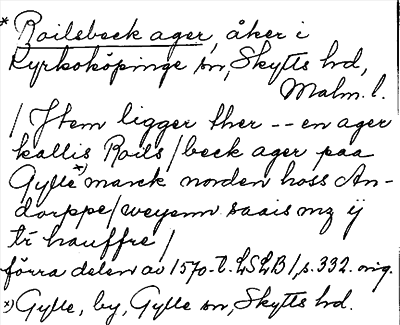 * Roilsbeck ager, åker i
Kyrkoköpinge sn, Skytts hd,
Malm. l.
/ Jtem ligger ther -- en ager
kallis Roils/beck ager paa
Gylle x) marck norden hoss An-
dorppe/weyenn saais mz ij
tr hauffre /
förra delen av 1570-t. LSLB1, s. 332. orig.
x) Gylle, by, Gylle sn, Skytts hd.